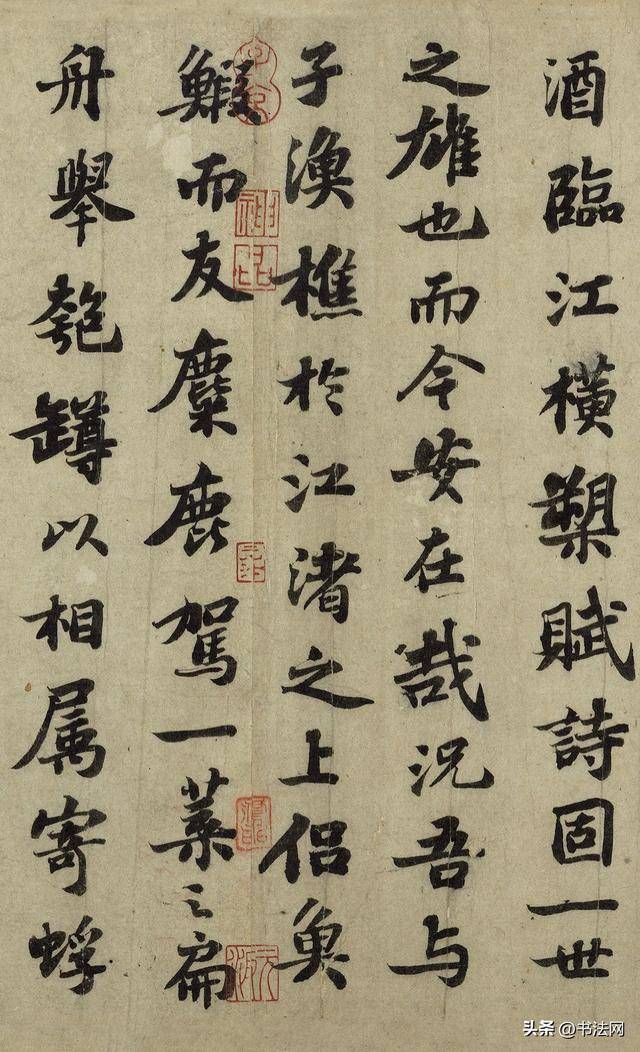 酒臨江橫槊賦詩固一世
之雄也而今安在哉況吾与
子漁樵於江渚之上侶魚
鰕而友麋鹿駕一葉之扁
舟舉匏罇以相属寄蜉
子京
神品
头条 @书法网